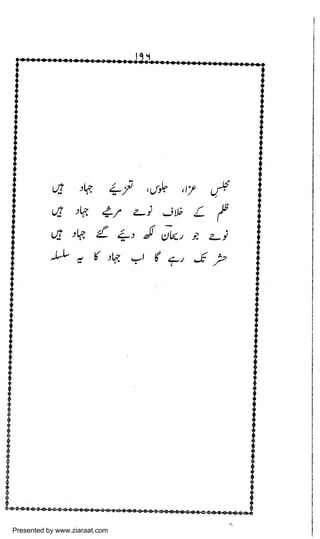 ۱۹۶
مجلسِ عزا، جلوس، تعزیے جہاد ہیں
ظلم کے خلاف نوحے مرثیے جہاد ہیں
نوحے جو ریحانؔ لکھ دیئے گئے جہاد ہیں
حشر تک رہے گا اب جہاد کا یہ سلسلہ
Presented by www.ziaraat.com